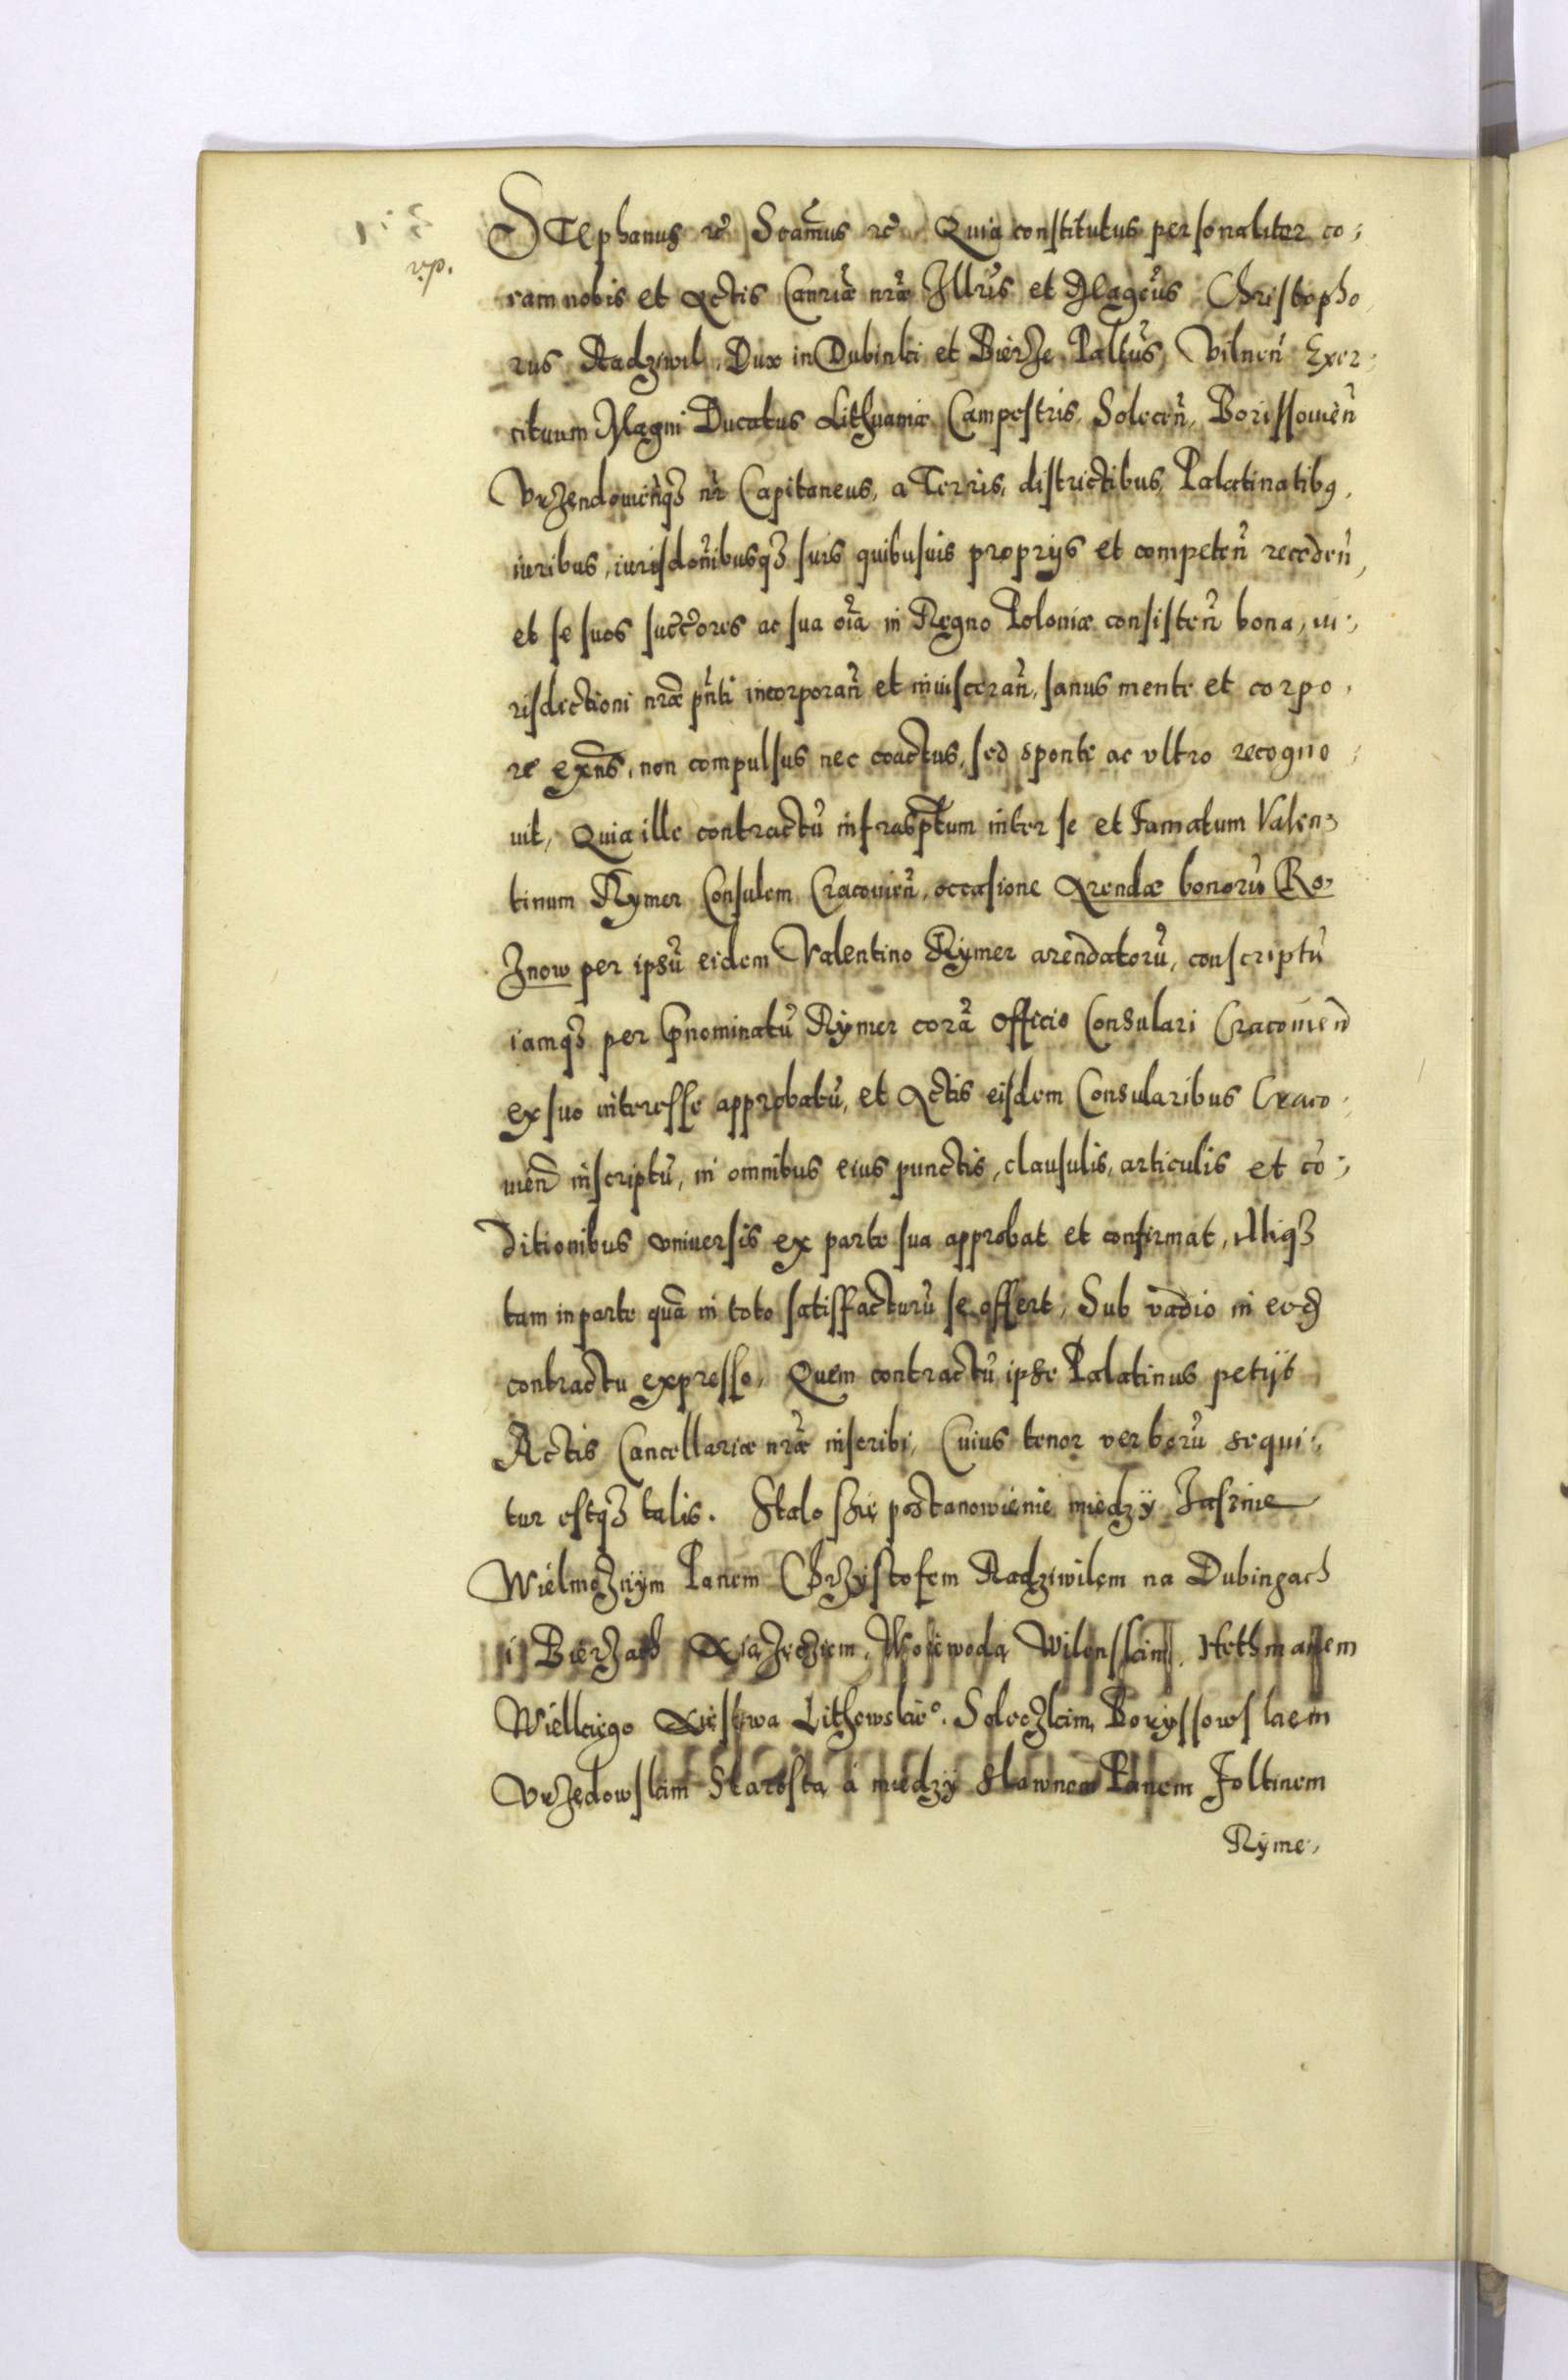 STephanus rc̃ Scam̃us rc̃ Quia constitutus personaliter co⸗
ram nobis et Actis Canriæ nr̃æ Illr̃is et Magcũs Christopho
rus Radziwil, Dux in Dubinki et Bierze Paltũs, Vilneñ Exer⸗
cituum Magni Ducatus Lithuaniæ Campestris, Soleceñ, Borissouieñ
Vrzendouieñq₃ nr̃ Capitaneus, a Terris, districtibus, Palatinatibꝰ,
iuribus, iurisdoñibusq₃ suis quibusuis proprijs et competeñ recedeñ,
et se suos succ̃ores ac sua oĩa in Regno Poloniæ consisteñ bona, iu⸗
risdictioni nr̃æ pñti incorporañ et inuisceran̄, sanus mente et corpo⸗
re exñs, non compulsus nec coactus, sed sponte ac vltro recogno⸗
uit, Quia ille contractũ infrasp̃tum inter se et Famatum Valen⸗
tinum Rymer Consulem Cracouieñ, occasione Arendæ bonorũ Ro⸗
żnow per ipsũ eidem Valentino Rymer arendatorũ, conscriptũ
iamq₃ per p̃nominatũ Rymer corã Officio Consulari Cracouieñ
ex suo interesse approbatũ, et Actis eisdem Consularibus Craco⸗
uieñ inscriptũ, in omnibus eius punctis, clausulis, articulis et cõ⸗
ditionibus vniuersis ex parte sua approbat et confirmat, Illiq₃
tam in parte quã in toto satisfacturũ se offert, Sub vadio in eod̃
contractu expresso, Quem contractũ ipse Palatinus petijt
Actis Cancellariæ nr̃æ inscribi, Cuius tenor verborũ sequi⸗
tur estq₃ talis. Stalo szię postanowienie miedzÿ Jasznie
Wielmożnÿm Panem Chrzÿstofem Radziwilem na Dubingach
i Bierzach Xiążęcziem, Woiewodą Wilenskim, Hethmanem
Wielkiego Xięstwa Lithewskieº. Soleczkim, Boryssowskiem
Vrzędowskim Starostą á miedzÿ Slawnem Panem Foltinem
Ryme⸗